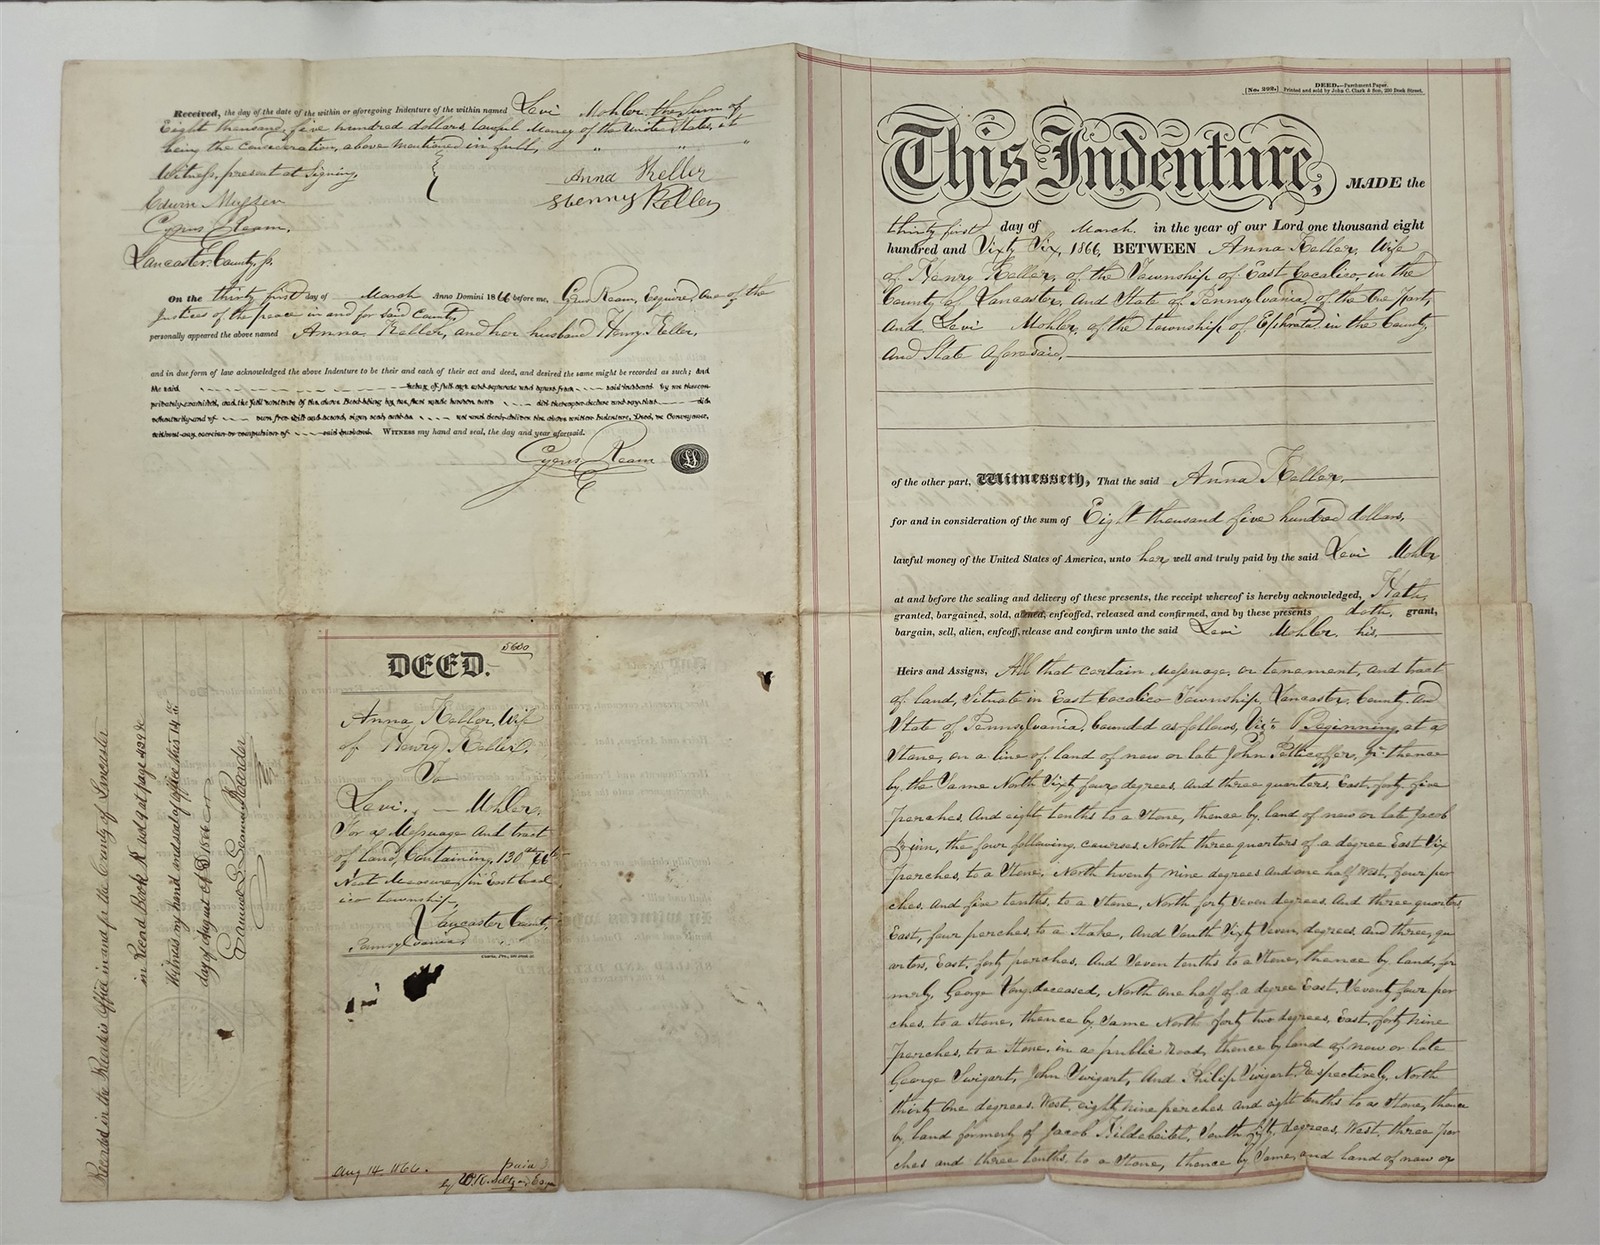 Received, the day of the date of the within or aforegoing Indenture of the within named Levi Mohler, the Sum of
Eight thousand, five hundred dollars, lawful Money of the United States, it
being the consideration, above mentioned in full,
Witness, present at Signing,
Anna Keller
Edwin Musser
Henry Keller
Cyrus Ream.
Lancaster County, ss.
On the thirty first day of March Anno Domini 1866 before me, Cyrus Ream, Esquire, One of the
Justices of the peace in and for said County,
personally appeared the above named Anna Keller, and her husband Henry Keller,
and in due form of law acknowledged the above Indenture to be their and each of their act and deed, and desired the same might be recorded as such; and
the said being of full age and separate and apart from said husband by me thereon
privately examined, and the full contents of the above Deed being by me first made known unto did thereupon declare and say that did
voluntarily and of own free will and accord, sign, seal, and as act and deed, deliver the above written Indenture, Deed, or Conveyance,
without any coercion or compulsion of said husband. WITNESS my hand and seal, the day and year aforesaid.
Cyrus Ream
LS
Recorded in the Recorder's Office in and for the County of Lancaster
in Record Book K vol 9 at page 499 &c
Witness my hand and seal of office this 14th
day of August AD 1866
Recorder
5600
DEED.
Anna Keller, Wife
of Henry Keller.
To
Levi Mohler.
For a Messuage And tract
of land, Containing, 130
Neat Measure, in East Cocal-
ico township,
Lancaster County,
Pennsylvania.
Aug 14. 1866.
paid
by
DEED.—Parchment Paper.
[No. 292.] Printed and sold by John C. Clark & Son, 230 Dock Street.
This Indenture, MADE the
thirty first day of March. in the year of our Lord one thousand eight
hundred and Sixty Six, 1866, BETWEEN Anna Keller, Wife
of Henry Keller, of the Township of East Cocalico, in the
County of Lancaster, and State of Pennsylvania, of the One Part,
and Levi Mohler, of the township of Ephrata, in the County,
and State aforesaid,
of the other part, Witnesseth, That the said Anna Keller,
for and in consideration of the sum of Eight thousand five hundred dollars,
lawful money of the United States of America, unto her well and truly paid by the said Levi Mohler
at and before the sealing and delivery of these presents, the receipt whereof is hereby acknowledged, Hath,
granted, bargained, sold, aliened, enfeoffed, released and confirmed, and by these presents doth, grant,
bargain, sell, alien, enfeoff, release and confirm unto the said Levi Mohler, his,
Heirs and Assigns, All that certain Messuage, or tenement, and tract
of land, Situate in East Cocalico Township, Lancaster, County and
State of Pennsylvania, bounded as follows, Viz: Beginning, at a
Stone, on a line of land of now or late John thence
by the Same North Sixty four degrees, and three quarters, East, forty five
perches, And eight tenths to a Stone, thence by, land of now or late Jacob
the four following, courses, North three quarters of a degree East Six
perches, to a Stone, North twenty nine degrees and one half West, four per
ches, And five tenths, to a Stone, North forty Seven degrees, And three quarters
East, four perches, to a Stake, And South Sixty Seven, degrees, And three, qu
arters, East, forty perches, And Seven tenths to a Stone, thence by, land, for
merly, George deceased, North one half of a degree East, Seventy four per
ches, to a Stone, thence by Same North forty two degrees, East, forty nine
perches, to a Stone, in a public road, thence by land of now or late
George Swigart, John Swigart, And Philip Swigart, Respectively, North
thirty one degrees, West, eighty nine perches and eight tenths to a Stone, thence
by, land formerly of Jacob South fifty, degrees, West, three per
ches and three tenths to a Stone, thence by Same, and land of now or